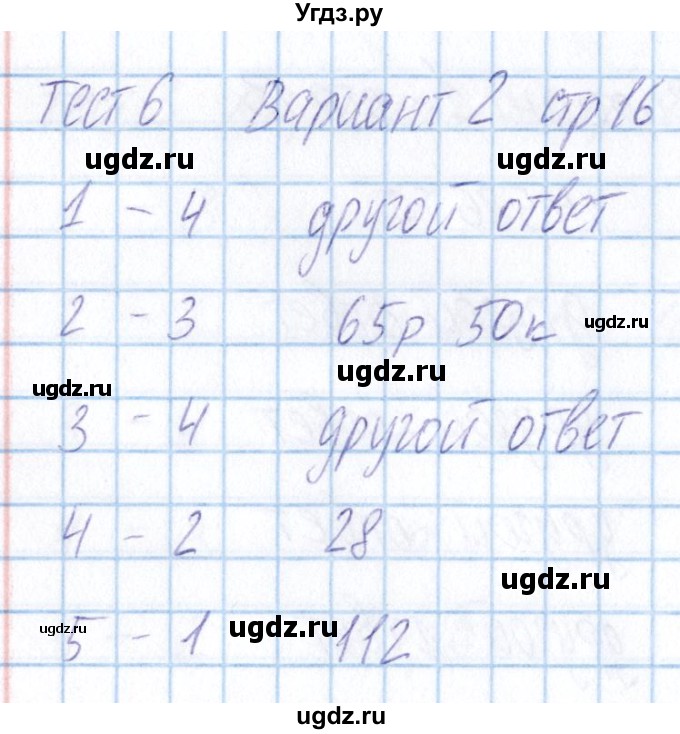 Угдз.ру
Тест 6 Вариант 2 стр 16
ugdz.ru ugdz.ru
1 - 4 другой ответ
2 - 3 65р 50к ugdz.ru
ugdz.ru
ugdz.ru
3 - 4 другой ответ
4 - 2 28
ugdz.ru
ugdz.ru
5 - 1 ugdz.ru 112
ugdz.ru